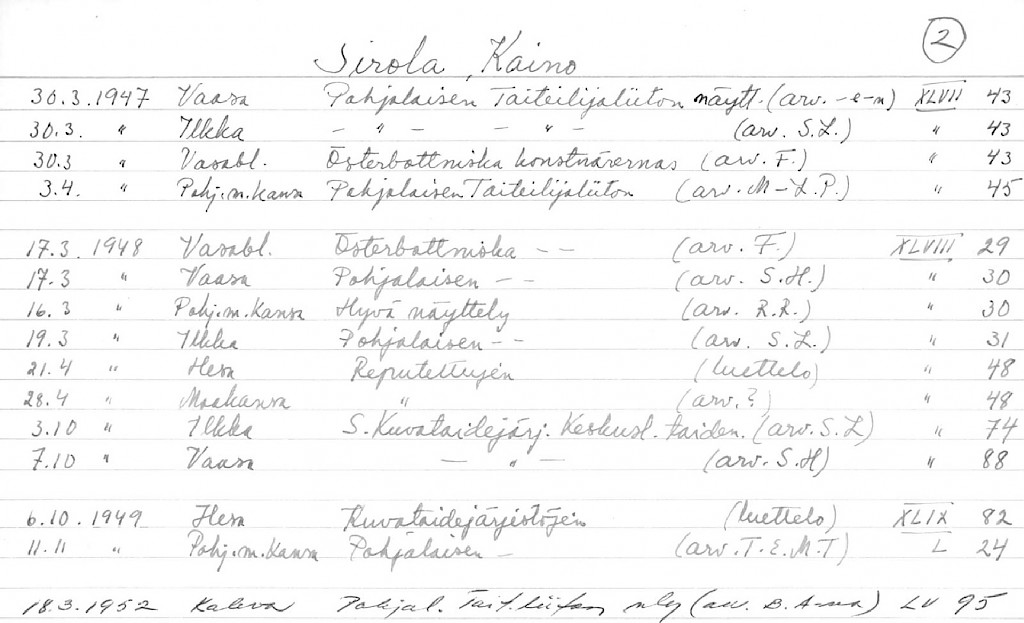 2
Sirola, Kaino
30.3.1947 Vaasa Pohjalaisen Taiteilijaliiton näytt. (arv. -e-n) XLVII 43
30.3. " Ilkka - " - - " - (arv. S.L.) " 43
30.3 " Vasabl. Österbottniska konstnärernas (arv. F.) " 43
3.4. " Pohj.m.Kansa Pohjalaisen Taiteilijaliiton (arv. M-L.P.) " 45
17.3. 1948 Vasabl. Österbottniska - - (arv. F.) XLVIII 29
17.3 " Vaasa Pohjalaisen - - (arv. S.H.) " 30
16.3 " Pohj.m.Kansa Hyvä näyttely (arv. R.R.) " 30
19.3 " Ilkka Pohjalaisen - - (arv. S.L.) " 31
21.4 " Hesa Reputettujen (luettelo) " 48
28.4 " Maakansa " (arv. ?) " 48
3.10 " Ilkka S. Kuvataidejärj. Keskusl. taiden. (arv. S.L) " 74
7.10 " Vaasa - " - (arv. S.H) " 88
6.10.1949 Hesa Kuvataidejärjestöjen (luettelo) XLIX 82
11.11 " Pohj.m.Kansa Pohjalaisen - (arv. T.E.M.T) L 24
18.3.1952 Kaleva Pohjal. Tait. (arv. B. A-na) LV 95